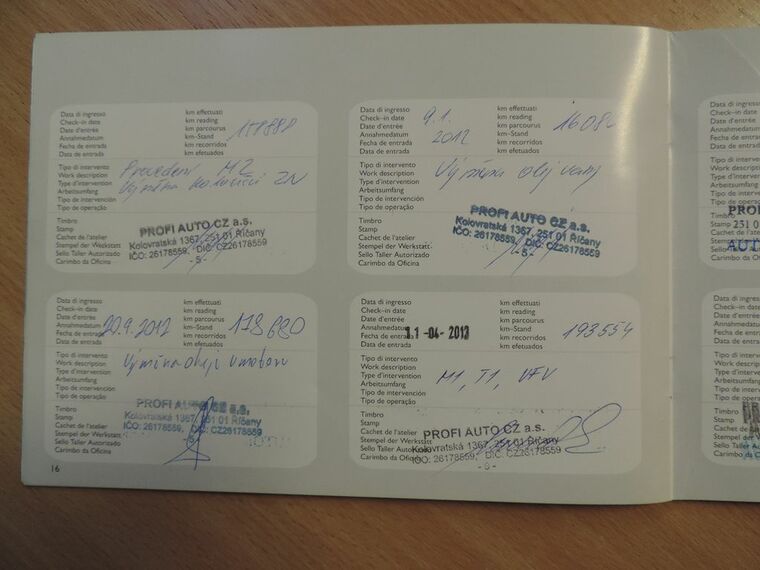 Data di ingresso
Check–in date
Date d'entrée
Annahmedatum
Fecha de entrada
Data de entrada
km effettuati
km reading
km parcourus
km–Stand
km recorridos
km efetuados
Tipo di intervento
Work description
Type d'intervention
Arbeitsumfang
Tipo de intervención
Tipo de operação
Provedení M2
Výměna
Timbro
Stamp
Cachet de l'atelier
Stempel der Werkstatt
Sello Taller Autorizado
Carimbo da Oficina
PROFI AUTO CZ a.s.
Kolovratská 1367, 251 01 Říčany
IČO: 26178559, DIČ: CZ26178559
- 5 -
Data di ingresso
Check–in date
Date d'entrée
Annahmedatum
Fecha de entrada
Data de entrada
9.1.
2012
km effettuati
km reading
km parcourus
km–Stand
km recorridos
km efetuados
Tipo di intervento
Work description
Type d'intervention
Arbeitsumfang
Tipo de intervención
Tipo de operação
Výměna olej
Timbro
Stamp
Cachet de l'atelier
Stempel der Werkstatt
Sello Taller Autorizado
Carimbo da Oficina
PROFI AUTO CZ a.s.
Kolovratská 1367, 251 01 Říčany
IČO: 26178559, DIČ: CZ26178559
- 5 -
Data di ingresso
Check–in date
Date d'entrée
Annahmedatum
Fecha de entrada
Data de entrada
20.9.2012
km effettuati
km reading
km parcourus
km–Stand
km recorridos
km efetuados
178680
Tipo di intervento
Work description
Type d'intervention
Arbeitsumfang
Tipo de intervención
Tipo de operação
Výměna oleje v motoru
Timbro
Stamp
Cachet de l'atelier
Stempel der Werkstatt
Sello Taller Autorizado
Carimbo da Oficina
PROFI AUTO CZ a.s.
Kolovratská 1367, 251 01 Říčany
IČO: 26178559, DIČ: CZ26178559
Data di ingresso
Check–in date
Date d'entrée
Annahmedatum
Fecha de entrada
Data de entrada
-04- 2013
km effettuati
km reading
km parcourus
km–Stand
km recorridos
km efetuados
193554
Tipo di intervento
Work description
Type d'intervention
Arbeitsumfang
Tipo de intervención
Tipo de operação
M1, T1, VFV
Timbro
Stamp
Cachet de l'atelier
Stempel der Werkstatt
Sello Taller Autorizado
Carimbo da Oficina
PROFI AUTO CZ a.s.
Kolovratská 1367, 251 01 Říčany
IČO: 26178559, DIČ: CZ26178559
- 6 -
16
Data di ingresso
Check–in date
Date d'entrée
Annahmedatum
Fecha de entrada
Data de entrada
Tipo di
Work de
Type d'in
Arbeitsu
Tipo de
Tipo de
Timbro
Stamp
251 0
AUT
Data di ingr
Check–in d
Date d'entr
Annahmed
Fecha de en
Data de ent
Tipo di inte
Work des
Type d'int
Arbeitsum
Tipo de in
Tipo de o
Timbro
Stamp
Cachet de
Stempel d
Sello Talle
Carimbo d